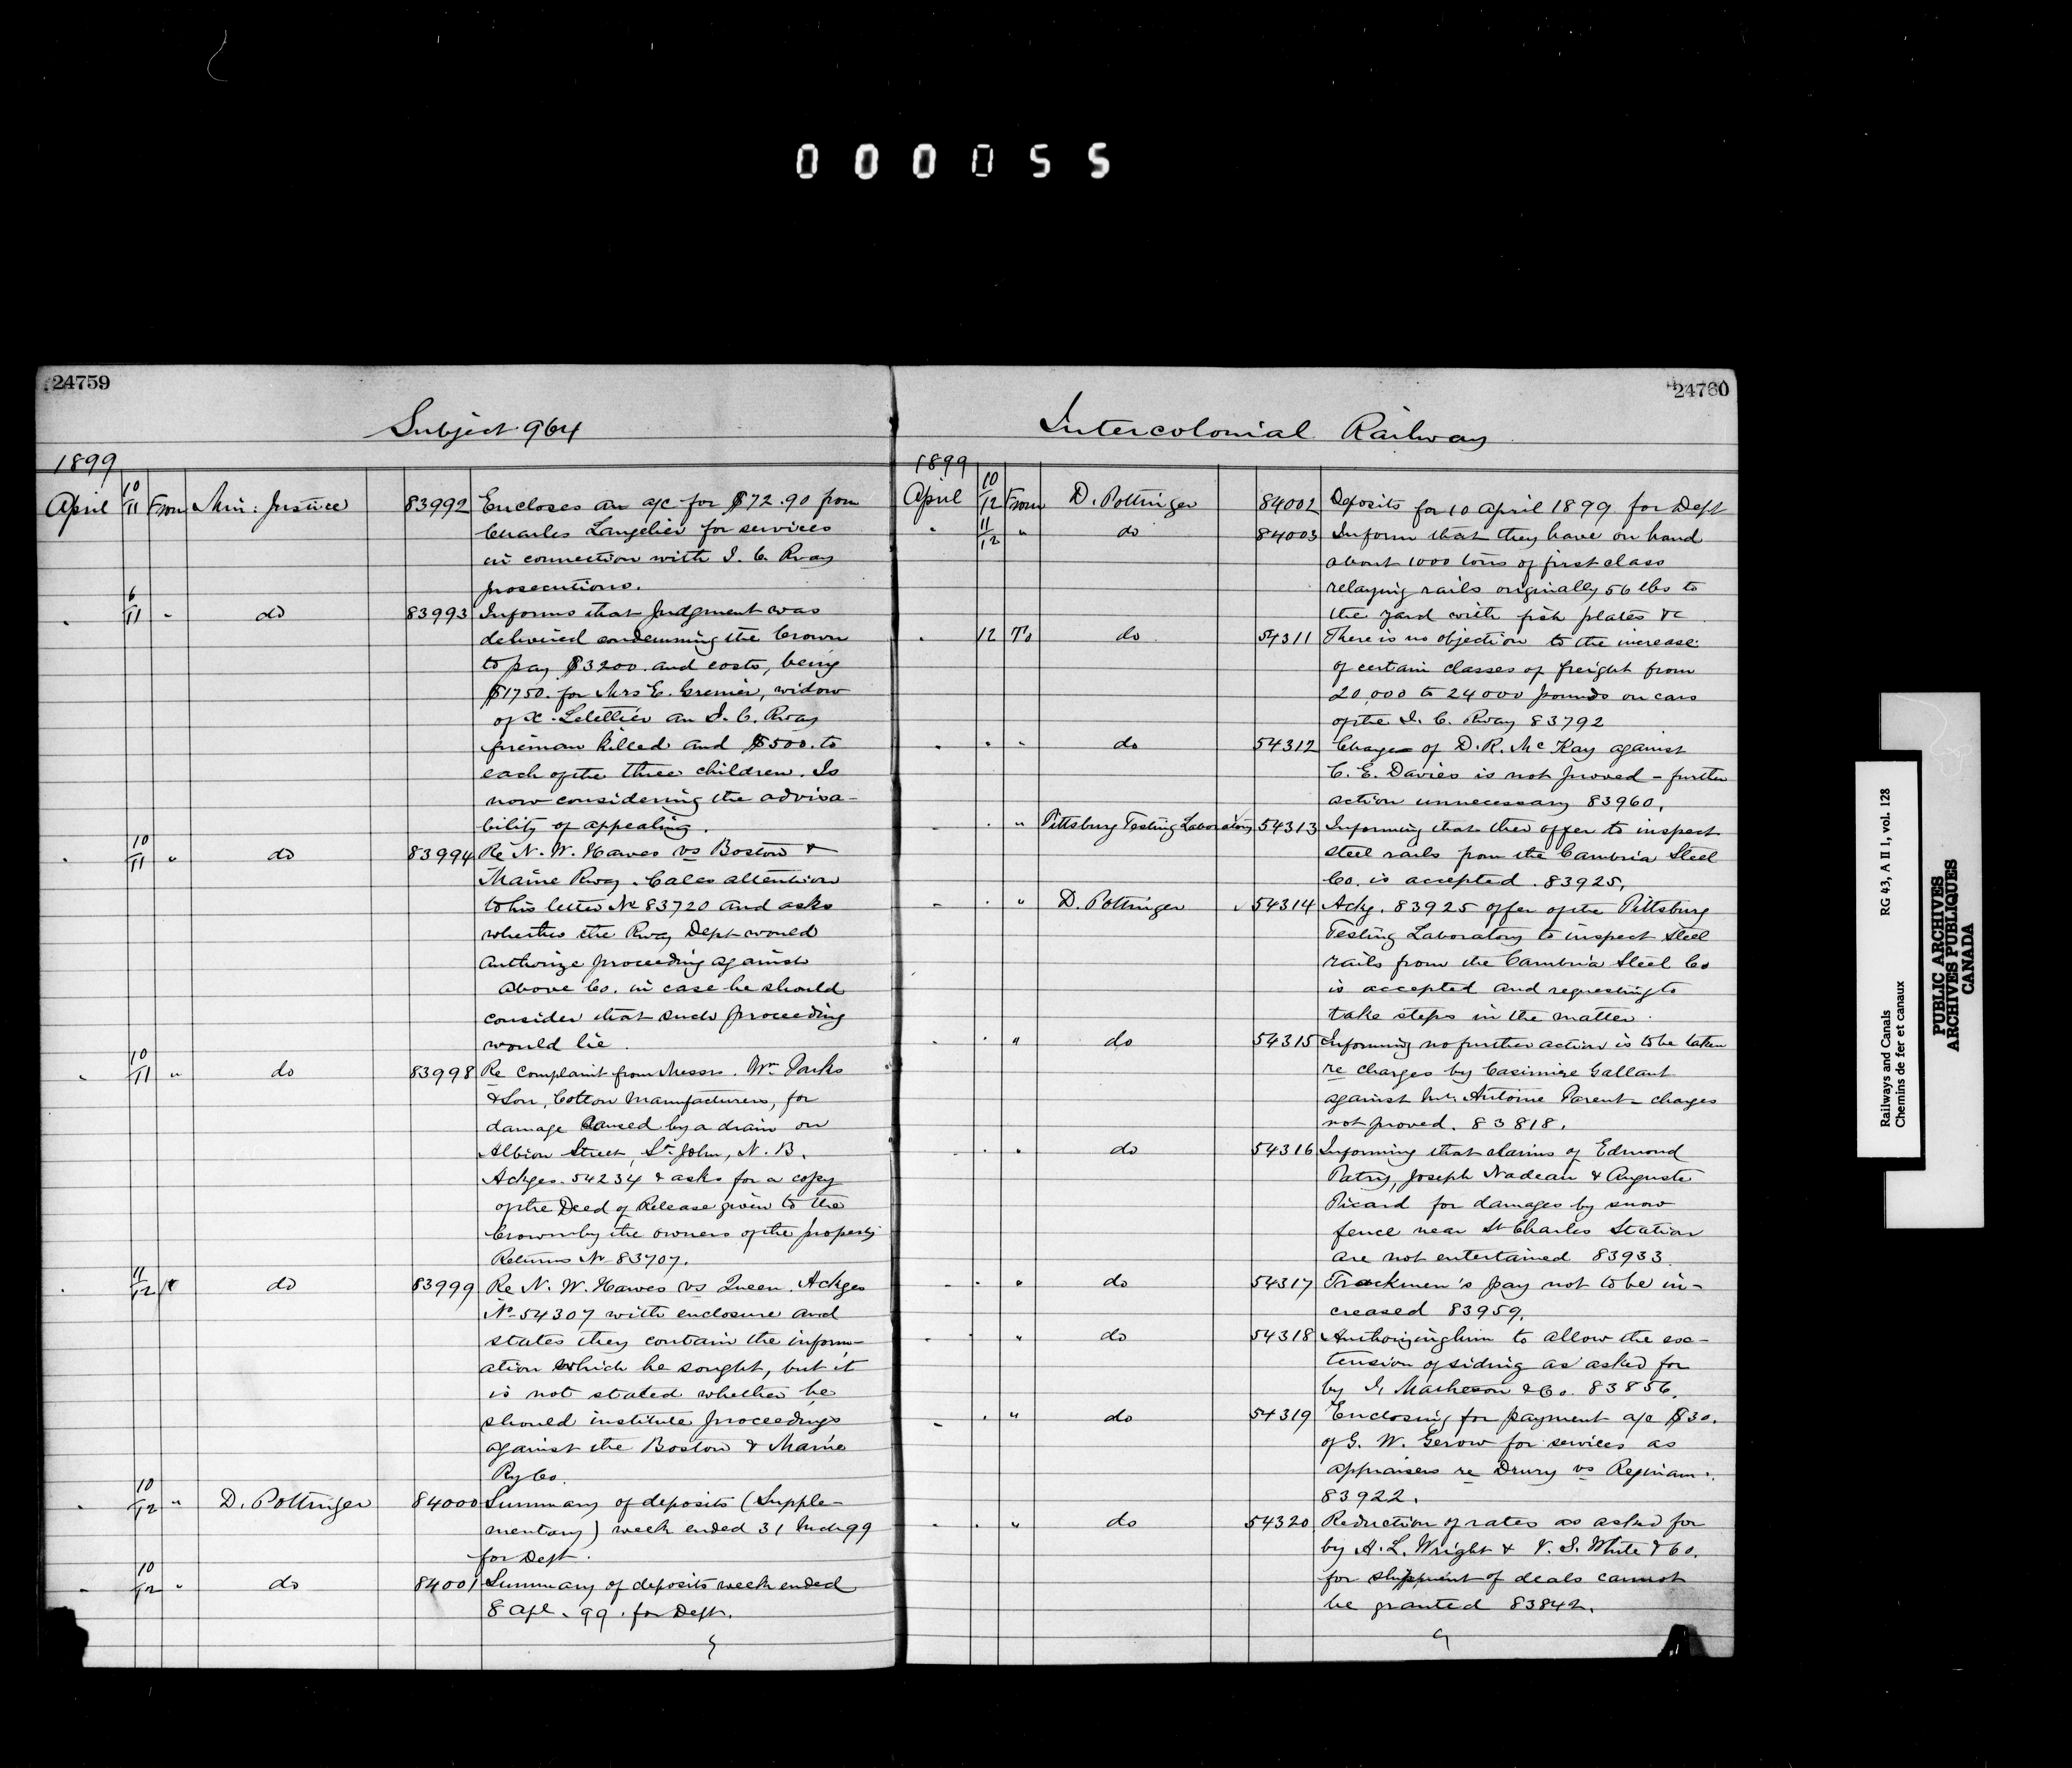 000055
24759
Subject 964
1899
April 10/11 From Min: Justice 83992 Encloses an a/c for $72.90 from
Charles Langelier for services
in connection with I. C. Rway
prosecutions.
" 6/11 " do 83993 Informs that Judgment was
delivered condemning the Crown
to pay $3200. and costs, being
$1750. for Mrs E. Grenier, widow
of X. Letellier an I. C. Rway
fireman killed and $500. to
each of the three children. Is
now considering the advisa-
bility of appealing.
" 10/11 " do 83994 Re N. W. Hawes vs Boston &
Maine Rway. Calls attention
to his letter No 83720 and asks
whether the Rway Dept would
authorize proceeding against
above Co. in case he should
consider that such proceeding
would lie.
" 10/11 " do 83998 Re complaint from Messrs. Wm Parks
& Son, Cotton Manufacturers, for
damage caused by a drain on
Albion Street, St. John, N. B.
Ackges. 54234 & asks for a copy
of the Deed of Release given to the
Crown by the owners of the property
Returns No 83707.
" 11/12 " do 83999 Re N. W. Hawes vs Queen. Ackges
No 54307 with enclosure and
states they contain the inform-
ation which he sought, but it
is not stated whether he
should institute proceedings
against the Boston & Maine
Ry Co.
" 10/12 " D. Pottinger 84000 Summary of deposits (Supple-
mentary) week ended 31 Mch 99
for Dept.
" 10/12 " do 84001 Summary of deposits week ended
8 Apl. 99. for Dept.
24760
Intercolonial Railway
1899
April 10/12 From D. Pottinger 84002 Deposits for 10 April 1899 for Dept
" 11/12 " do 84003 Inform that they have on hand
about 1000 tons of first class
relaying rails originally 56 lbs to
the yard with fish plates &c
" 12 To do 54311 There is no objection to the increase
of certain classes of freight from
20,000 to 24000 pounds on cars
of the I. C. Rway 83792
" " " do 54312 Charge of D. R. McKay against
C. E. Davies is not proved - further
action unnecessary 83960.
" " " Pittsburg Testing Laboratory 54313 Informing that their offer to inspect
steel rails from the Cambria Steel
Co. is accepted. 83925.
" " " D. Pottinger 54314 Ackg. 83925 offer of the Pittsburg
Testing Laboratory to inspect steel
rails from the Cambria Steel Co
is accepted and requesting to
take steps in the matter.
" " " do 54315 Informing no further action is to be taken
re charges by Casimire Gallant
against Mr. Antoine Parent - charges
not proved. 83818.
" " " do 54316 Informing that claims of Edmond
Patry, Joseph Nadeau & Auguste
Picard for damages by snow
fence near St Charles Station
are not entertained 83933.
" " " do 54317 Trackmen's pay not to be in-
creased 83959.
" " " do 54318 Authorizing him to allow the ex-
tension of siding as asked for
by I. Matheson & Co. 83856.
" " " do 54319 Enclosing for payment a/c $30.
of G. W. Gerow for services as
appraisers re Drury vs Reginam.
83922.
" " " do 54320 Reduction of rates as asked for
by A. L. Wright & V. S. White & Co.
for shipment of deals cannot
be granted 83842.
Railways and Canals RG 43, A II 1, vol. 128
Chemins de fer et canaux
PUBLIC ARCHIVES
ARCHIVES PUBLIQUES
CANADA